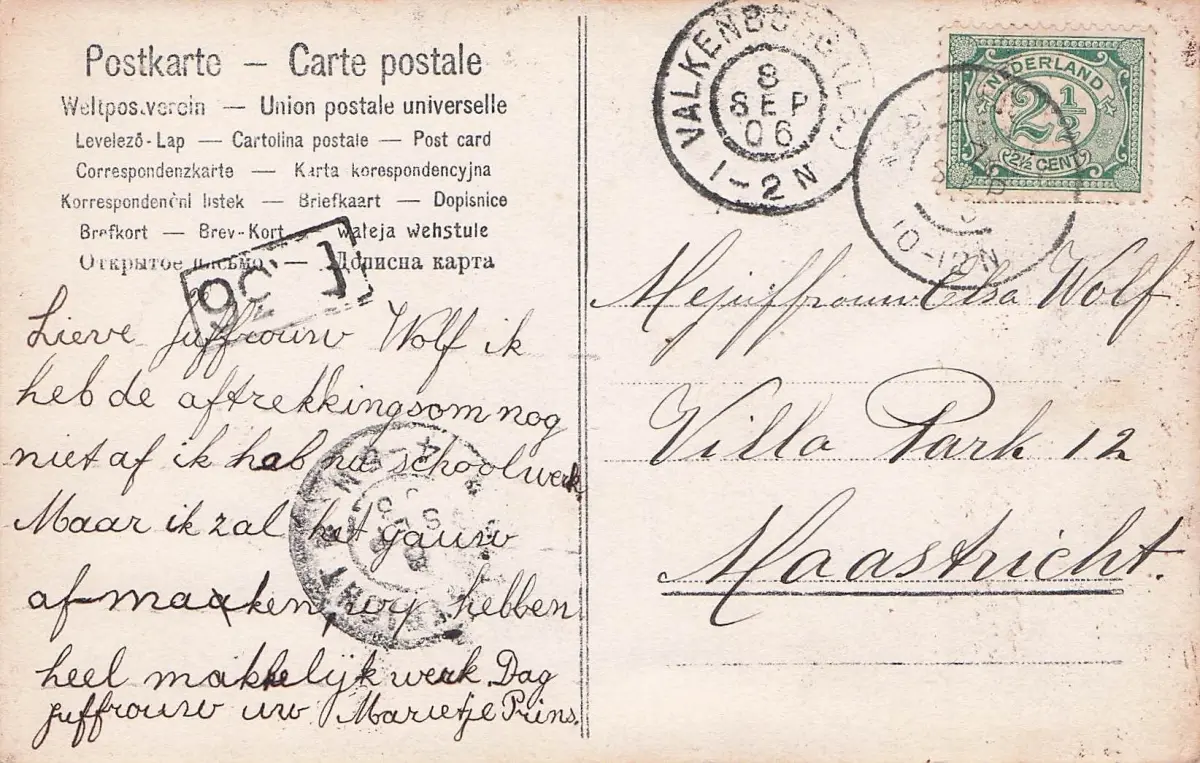 Postkarte — Carte postale
Weltpostverein — Union postale universelle
Levelező-Lap — Cartolina postale — Post card
Correspondenzkarte — Karta korespondencyjna
Korrespondenční lístek — Briefkaart — Dopisnice
Brefkort — Brev-Kort wateja wehstule
Открытое письмо — Дописна карта
Lieve Juffrouw Wolf ik
heb de aftrekkingsom nog
niet af ik hab nu schoolwerk
Maar ik zal het gauw
af maaken, wy hebben
heel makkelijk werk. Dag
Juffrouw uw Marietje Prins.
VALKENBURG
8
SEP
06
1-2N
10-12N
NEDERLAND
2½
2½ CENT
Mejuffrouw Elsa Wolf
Villa Park 12
Maastricht.